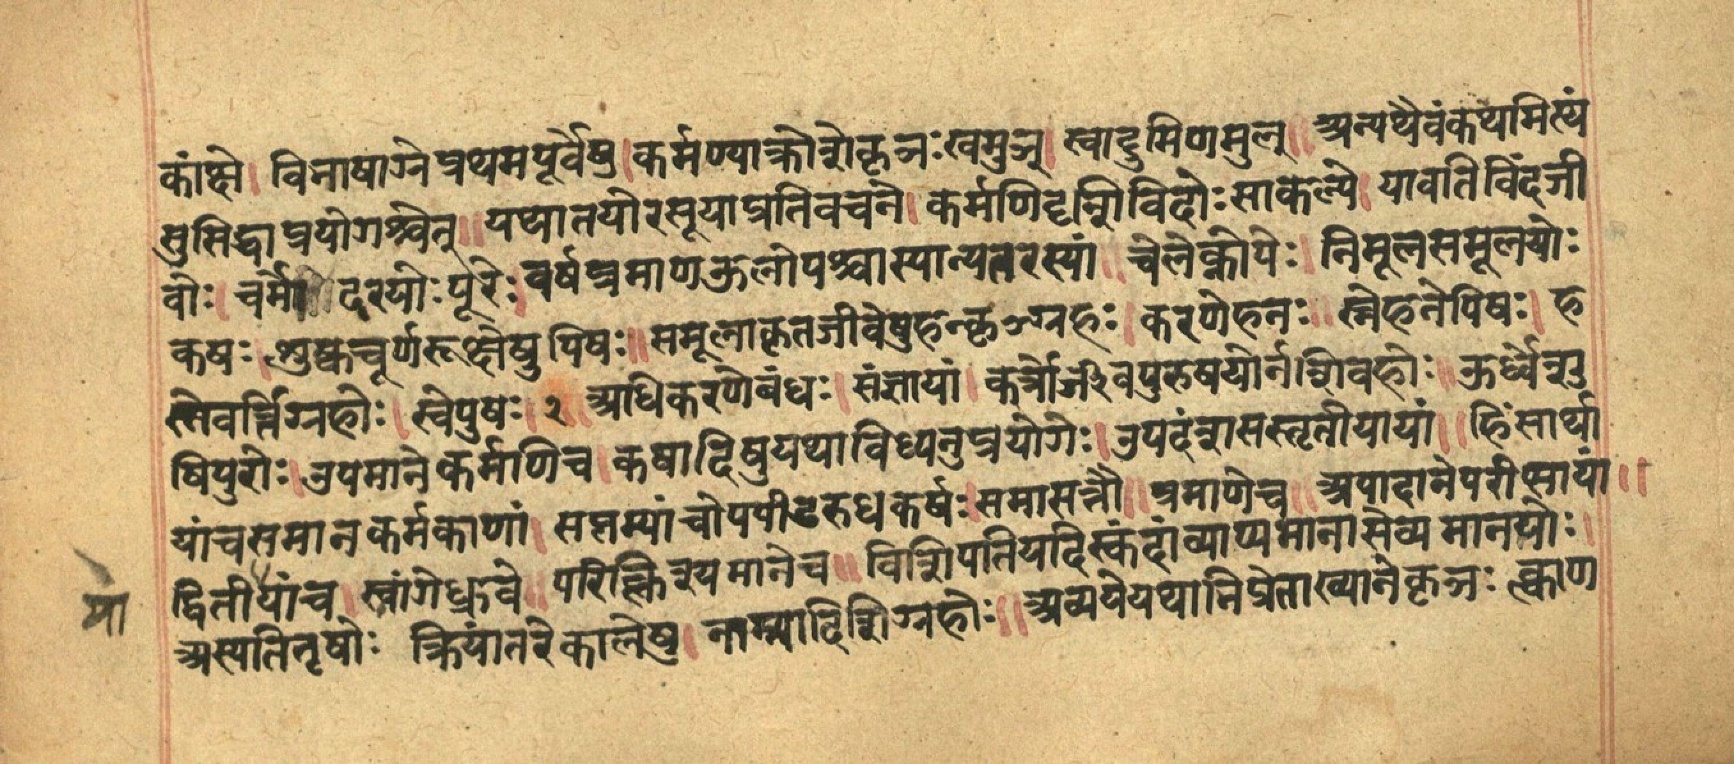 कांक्षे। विभाषाग्रे प्रथमपूर्वेषु। कर्मण्याक्रोशे कृञः खमुञ्। स्वादुमिणमुल्॥ अन्यथैवंकथमित्थं
सुसिद्धाप्रयोगश्चेत्॥ यथातथयोरसूयाप्रतिवचने। कर्मणिदृशिविदोः साकल्ये। यावतिविंदजी
वोः। चर्मोदरयोः पूरेः। वर्षप्रमाणऊलोपश्चास्यान्यतरस्यां॥ चेलेक्नोपेः। निमूलसमूलयोः
कषः। शुष्कचूर्णरूक्षेषु पिषः॥ समूलाकृतजीवेषुहन्कृञ्ग्रहः। करणेहनः॥ स्नेहनेपिषः। ह
स्तेवर्त्तिग्रहोः। स्वेपुषः २ अधिकरणेबंधः। संज्ञायां। कर्त्रोर्जीवपुरुषयोर्नशिवहोः॥ ऊर्ध्वेशु
षिपुरोः। उपमाने कर्मणिच। कषादिषुयथाविध्यनुप्रयोगः। उपदंशस्तृतीयायां॥ हिंसार्था
यांचसमानकर्मकाणां। सप्तम्यां चोपपीडरुधकर्षः। समासत्तौ॥ प्रमाणेच॥ अपादानेपरीप्सायां॥
द्वितीयांच। स्वांगेध्रुवे॥ परिक्लिश्यमानेच॥ विशिपतिपदिस्कंदांव्याप्यमानासेव्यमानयोः।
अस्यतितृषोः क्रियांतरे कालेषु। नाम्न्यादिशिग्रहोः॥ अव्ययेयथाभिप्रेताख्याने कृञः त्क्वाण
मा